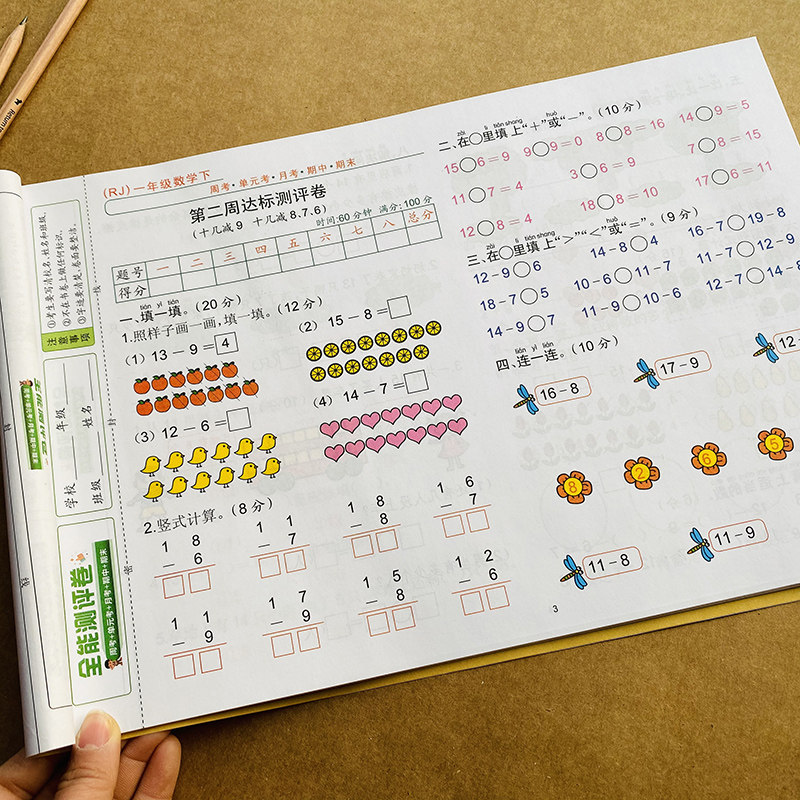 (RJ) 一年级数学下
周考·单元考·月考·期中·期末
第二周达标测评卷
(十几减9 十几减8.7.6)
时间:60分钟 满分:100分
题号 一 二 三 四 五 六 七 八 总分
得分
一、填一填。(20分)
1.照样子画一画,填一填。(12分)
(1) 13-9=4
(2) 15-8=□
(3) 12-6=□
(4) 14-7=□
2.竖式计算。(8分)
1 8
- 6
1 1
- 7
1 8
- 8
1 6
- 7
1 1
- 9
1 7
- 9
1 5
- 8
1 2
- 6
二、在○里填上“+”或“-”。(10分)
15○6=9 9○9=0 8○8=16 14○9=5
11○7=4 3○6=9 7○8=15
12○8=4 18○8=10 17○6=11
三、在○里填上“>”“<”或“=”。(9分)
12-9○6 14-8○4 16-7○19-8
18-7○5 10-6○11-7 11-7○12-9
14-9○7 11-9○10-6 12-7○14-8
四、连一连。(10分)
16-8
17-9
12-
8
2
6
5
11-8
11-9
3
①考生要写清校名、姓名和班级。
②不在书卷上做任何标识。
③字迹要清楚,卷面要整洁。
注意事项
学校 年级
班级 姓名
全能测评卷
周考+单元考+月考+期中+期末
线
封
密